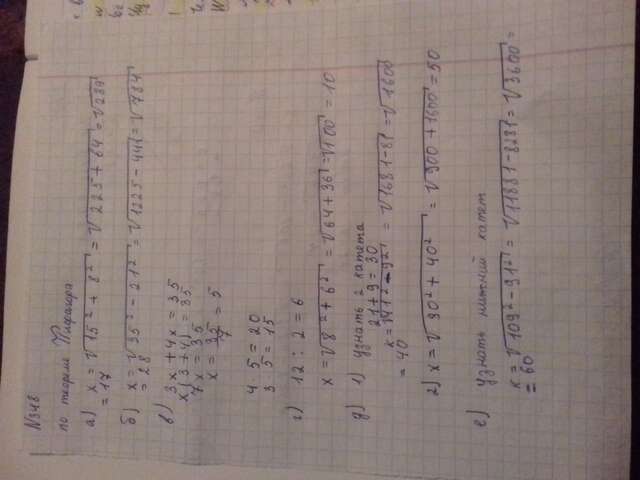 N348
по теореме Пифагора
а) x = √15² + 8² = √225 + 64 = √289
= 17
б) x = √35² - 21² = √1225 - 441 = √784
= 28
в) 3x + 4x = 35
x(3+4) = 35
7x = 35
x = 35/7 = 5
4 · 5 = 20
3 · 5 = 15
г) 12 : 2 = 6
x = √8² + 6² = √64 + 36 = √100 = 10
д) 1) узнать 2 катета
21 + 9 = 30
x = √41² - 9² = √1681 - 81 = √1600
= 40
2) x = √30² + 40² = √900 + 1600 = 50
е) узнать нижний катет
x = √109² - 91² = √11881 - 8281 = √3600 =
= 60